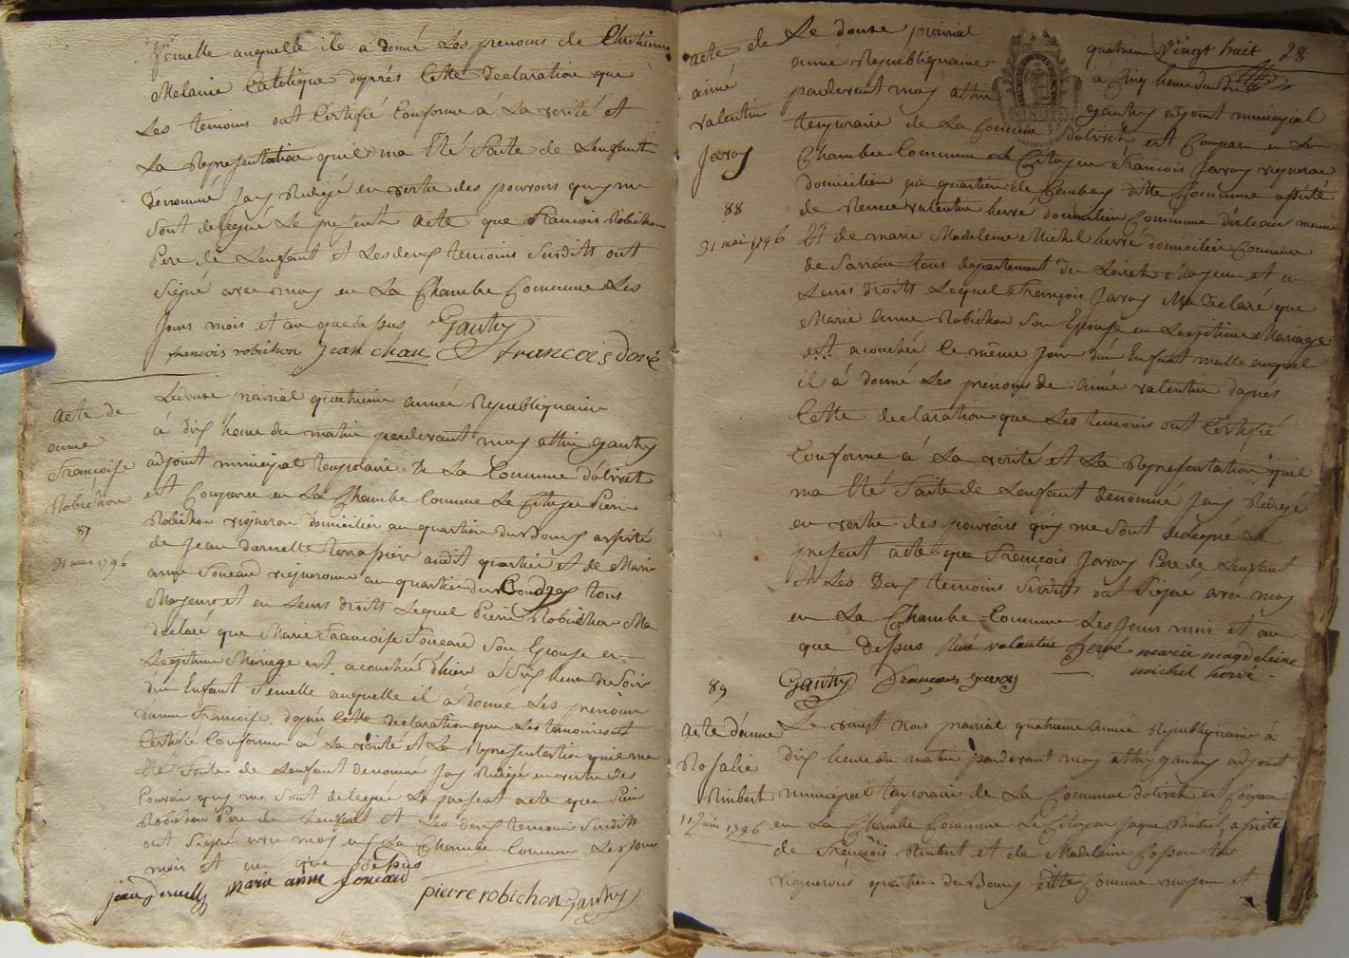 femelle auquelle il a donné Les prenoms de Christine
Melanie Catolique daprés Cette declaration que
Les temoins ont Certifié Conforme á La verité et
La Representation quil ma Eté faite de Lenfant
denommé Jay Redigé en vertu des pouvoirs qui me
sont delegué Le present acte que francois Robichon
Pere de Lenfant et Les deux temoins Susdits ont
Signé avec moy en La Chambre Commune Les
Jours mois et an que de sus Gautry
francois robichon Jean chau francois doré
acte de
anne
francoise
Robichon
87
31 mai 1796
Le douze prairial quatrieme année Republiquaine
á dix heure du matin pardevant moy attin gautry
adjoint municipal temporaire de La Commune dolivet
est Comparu en La Chambre Commune Le Citoyen Pierre
Robichon vigneron domicilier au quartier du Bourg assisté
de Jean darnelle terrassier audit quartier et de Marie
anne foucard vigneronne au quartier du tous
Majeurs et en Leurs droits Lequel Pierre Robichon Ma
declaré que Marie francoise foucard Son Epouse en
Legitime Mariage est acouchée dhier á Six heure du Soir
dun Enfant femelle auquelle il á donné Les prenoms
danne francoise daprés Cette declaration que Les temoins ont
Certifié Conforme á La verité et La Representation quil ma
Eté faite de Lenfant denommé Jay Redigé en vertu des
Pouvoirs qui me sont delegué Le present acte que Pierre
Robichon Pere de Lenfant et Les deux temoins Susdits
ont Signé avec moy en La Chambre Commune Les Jour
mois et an que desus
jean darnelle marie anne foucard pierre robichon Gautry
acte de
aimé
valentin
Javoy
88
31 mai 1796
Le douze prairial quatrieme vingt huit 28
année Republiquaine a Cinq heure du
pardevant moy attin gautry adjoint municipal
temporaire de La Commune dolivet est Comparu en La
Chambre Commune Le Citoyen francois Javoy vigneron
domicilier au quartier de ditte Commune assisté
de Rene valentin hervé domicilier Commune dorleans
Et de marie Madeleine Michel hervé domiciliée Commune
de tous departement du Loiret majeur et en
Leurs droits Lequel francois Javoy Ma declaré que
Marie anne Robichon Son Epouse en Legitime Mariage
est acouchée le même Jour dun Enfant malle auquel
il á donné Les prenoms de aimé valentin daprés
Cette declaration que Les temoins ont Certifié
Conforme á La verité et La Representation quil
ma Eté faite de Lenfant denommé Jay Redigé
en vertu des pouvoirs qui me sont delegué Le
present acte que francois Javoy Pere de Lenfant
et Les deux temoins Susdits ont Signé avec moy
en La Chambre Commune Les Jour mois et an
que desus Réné valentin hervé marie magdeleine
Gautry francois javoy michel hervé
89
acte danne
Rosalie
Rimbert
11 Juin 1796
Le vingt trois prairial quatrieme année Republiquaine a
dix heure du matin pardevant moy attin gautry adjoint
municipal temporaire de La Commune dolivet est Comparu
en La Chambre Commune Le Citoyen Jaque Rimbert assisté
de francois Rimbert et de Madelaine tous
vignerons quartier du Bourg ditte Commune majeur et